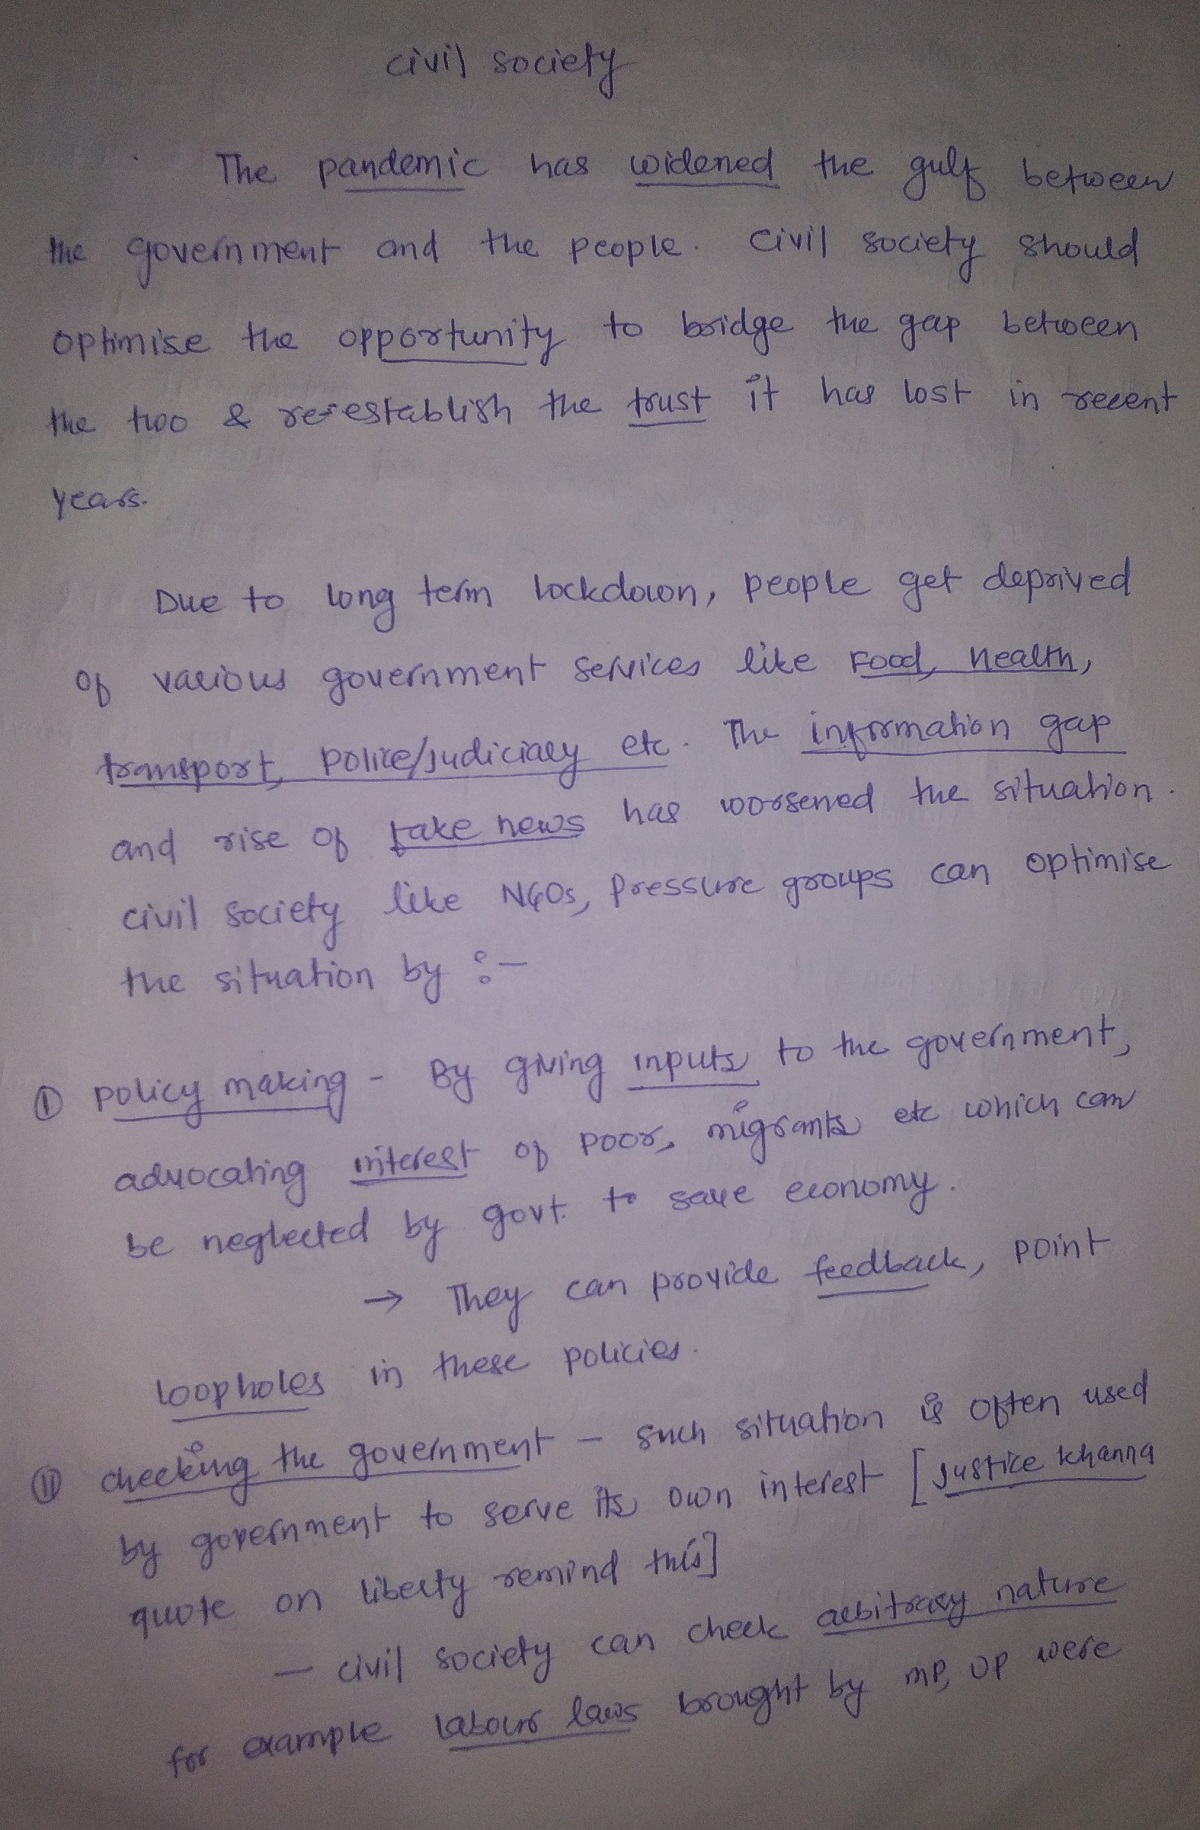 civil society
The pandemic has widened the gulf between
the government and the people. civil society should
optimise the opportunity to bridge the gap between
the two & re-establish the trust it has lost in recent
years.
Due to long term lockdown, people get deprived
of various government services like Food, Health,
transport, police/judiciary etc. The information gap
and rise of fake news has worsened the situation.
civil society like NGOs, pressure groups can optimise
the situation by :-
① policy making - By giving inputs to the government,
advocating interest of poor, migrants etc which can
be neglected by govt. to save economy.
→ They can provide feedback, point
loopholes in these policies.
⑪ checking the government - such situation is often used
by government to serve its own interest [Justice Khanna
quote on liberty remind this]
- civil society can check arbitrary nature
for example labour laws brought by MP, UP were